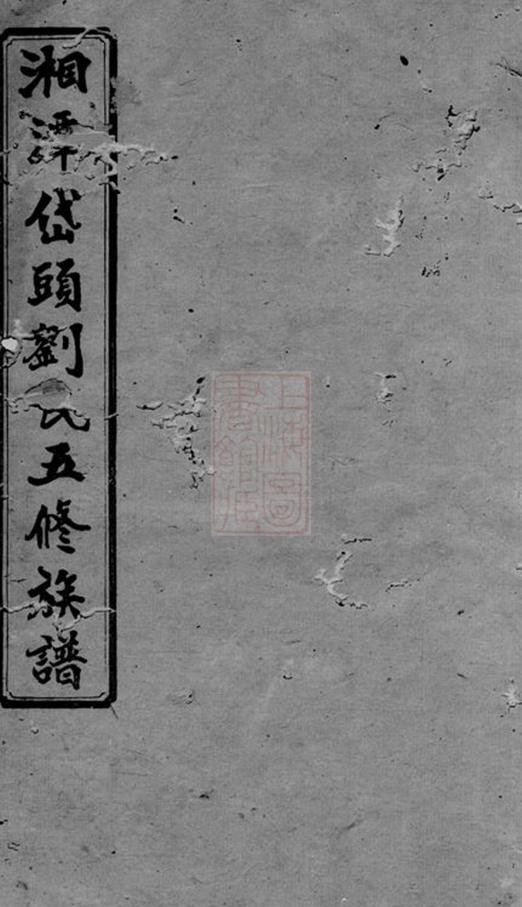 湘潭岱頭劉氏五修族譜
上海圖書館藏